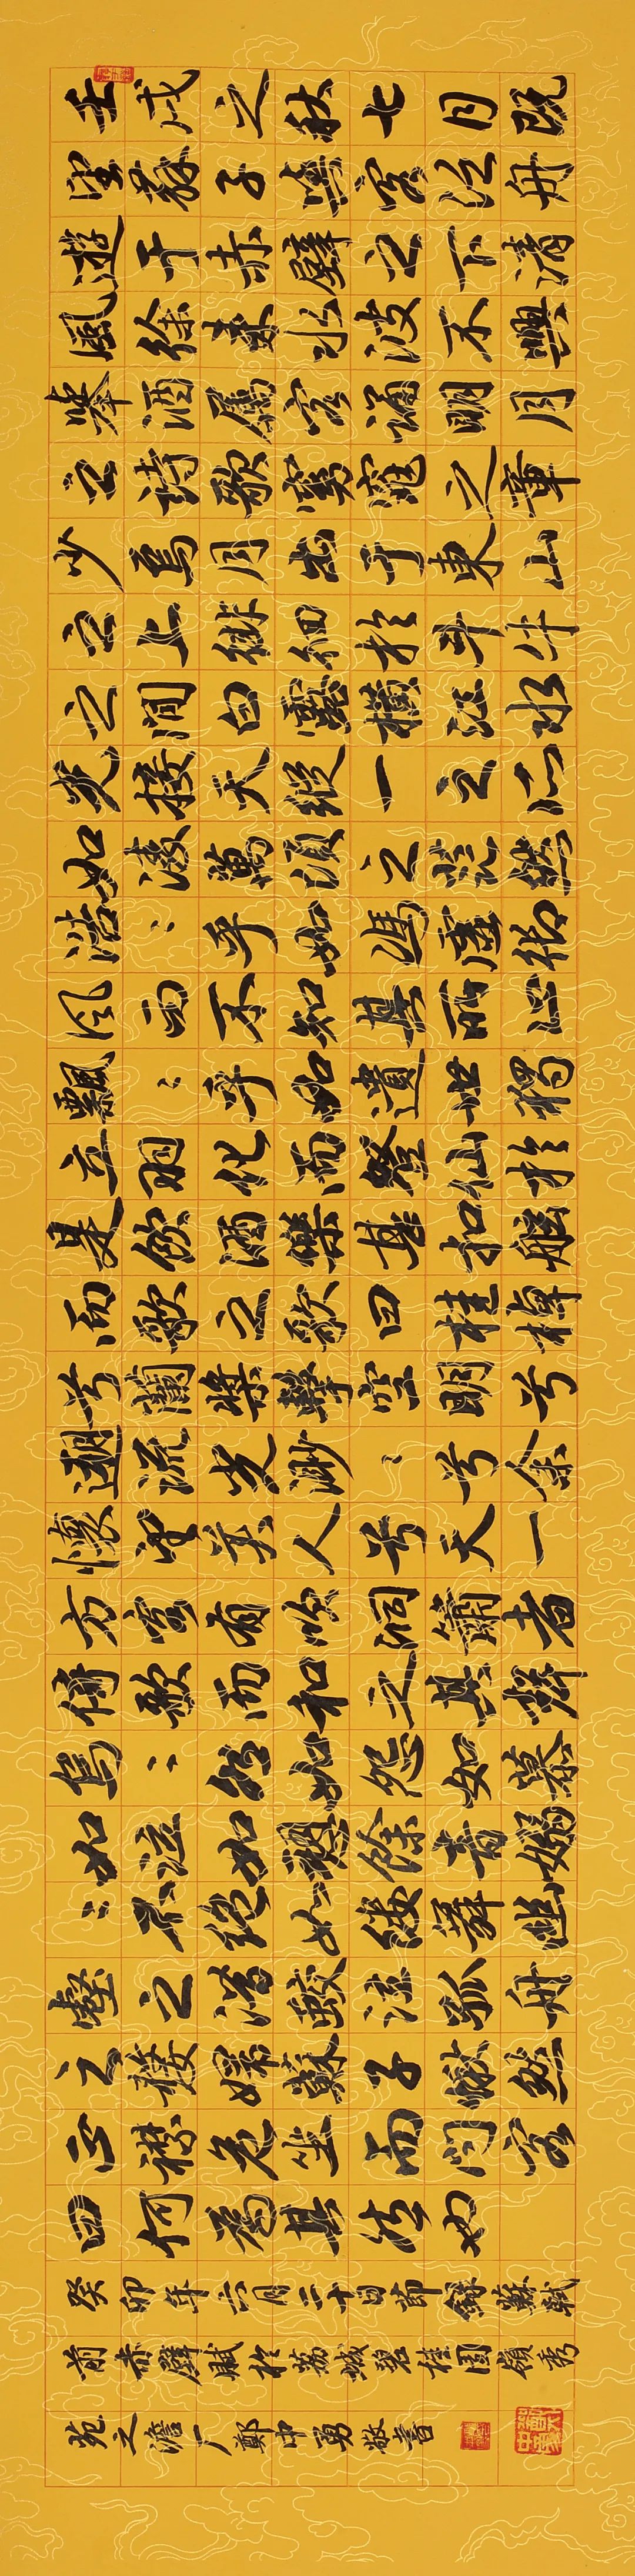 壬戌之秋七月既
望蘇子與客泛舟
遊于赤壁之下清
風徐來水波不興
舉酒屬客誦明月
之詩歌窈窕之章
少焉月出于東山
之上徘徊於斗牛
之間白露橫江水
光接天縱一之所
如凌萬頃之茫然
浩〻乎如馮虛御
風而不知其所止
飄〻乎如遺世獨
立羽化而登仙於
是飲酒樂甚扣舷
而歌之歌曰桂棹
兮蘭槳擊空明兮
遡流光渺〻兮余
懷望美人兮天一
方客有吹洞簫者
倚歌而和之其聲
烏〻然如怨如慕
如泣如訴餘音嫋
〻不絕如縷舞幽
壑之潛蛟泣孤舟
之嫠婦蘇子愀然
正襟危坐而問客
曰何為其然也
癸卯年六月二十日節錄蘇軾
前赤壁賦於荔城碧桂園領秀
苑之澹厂鄭中勇敬書